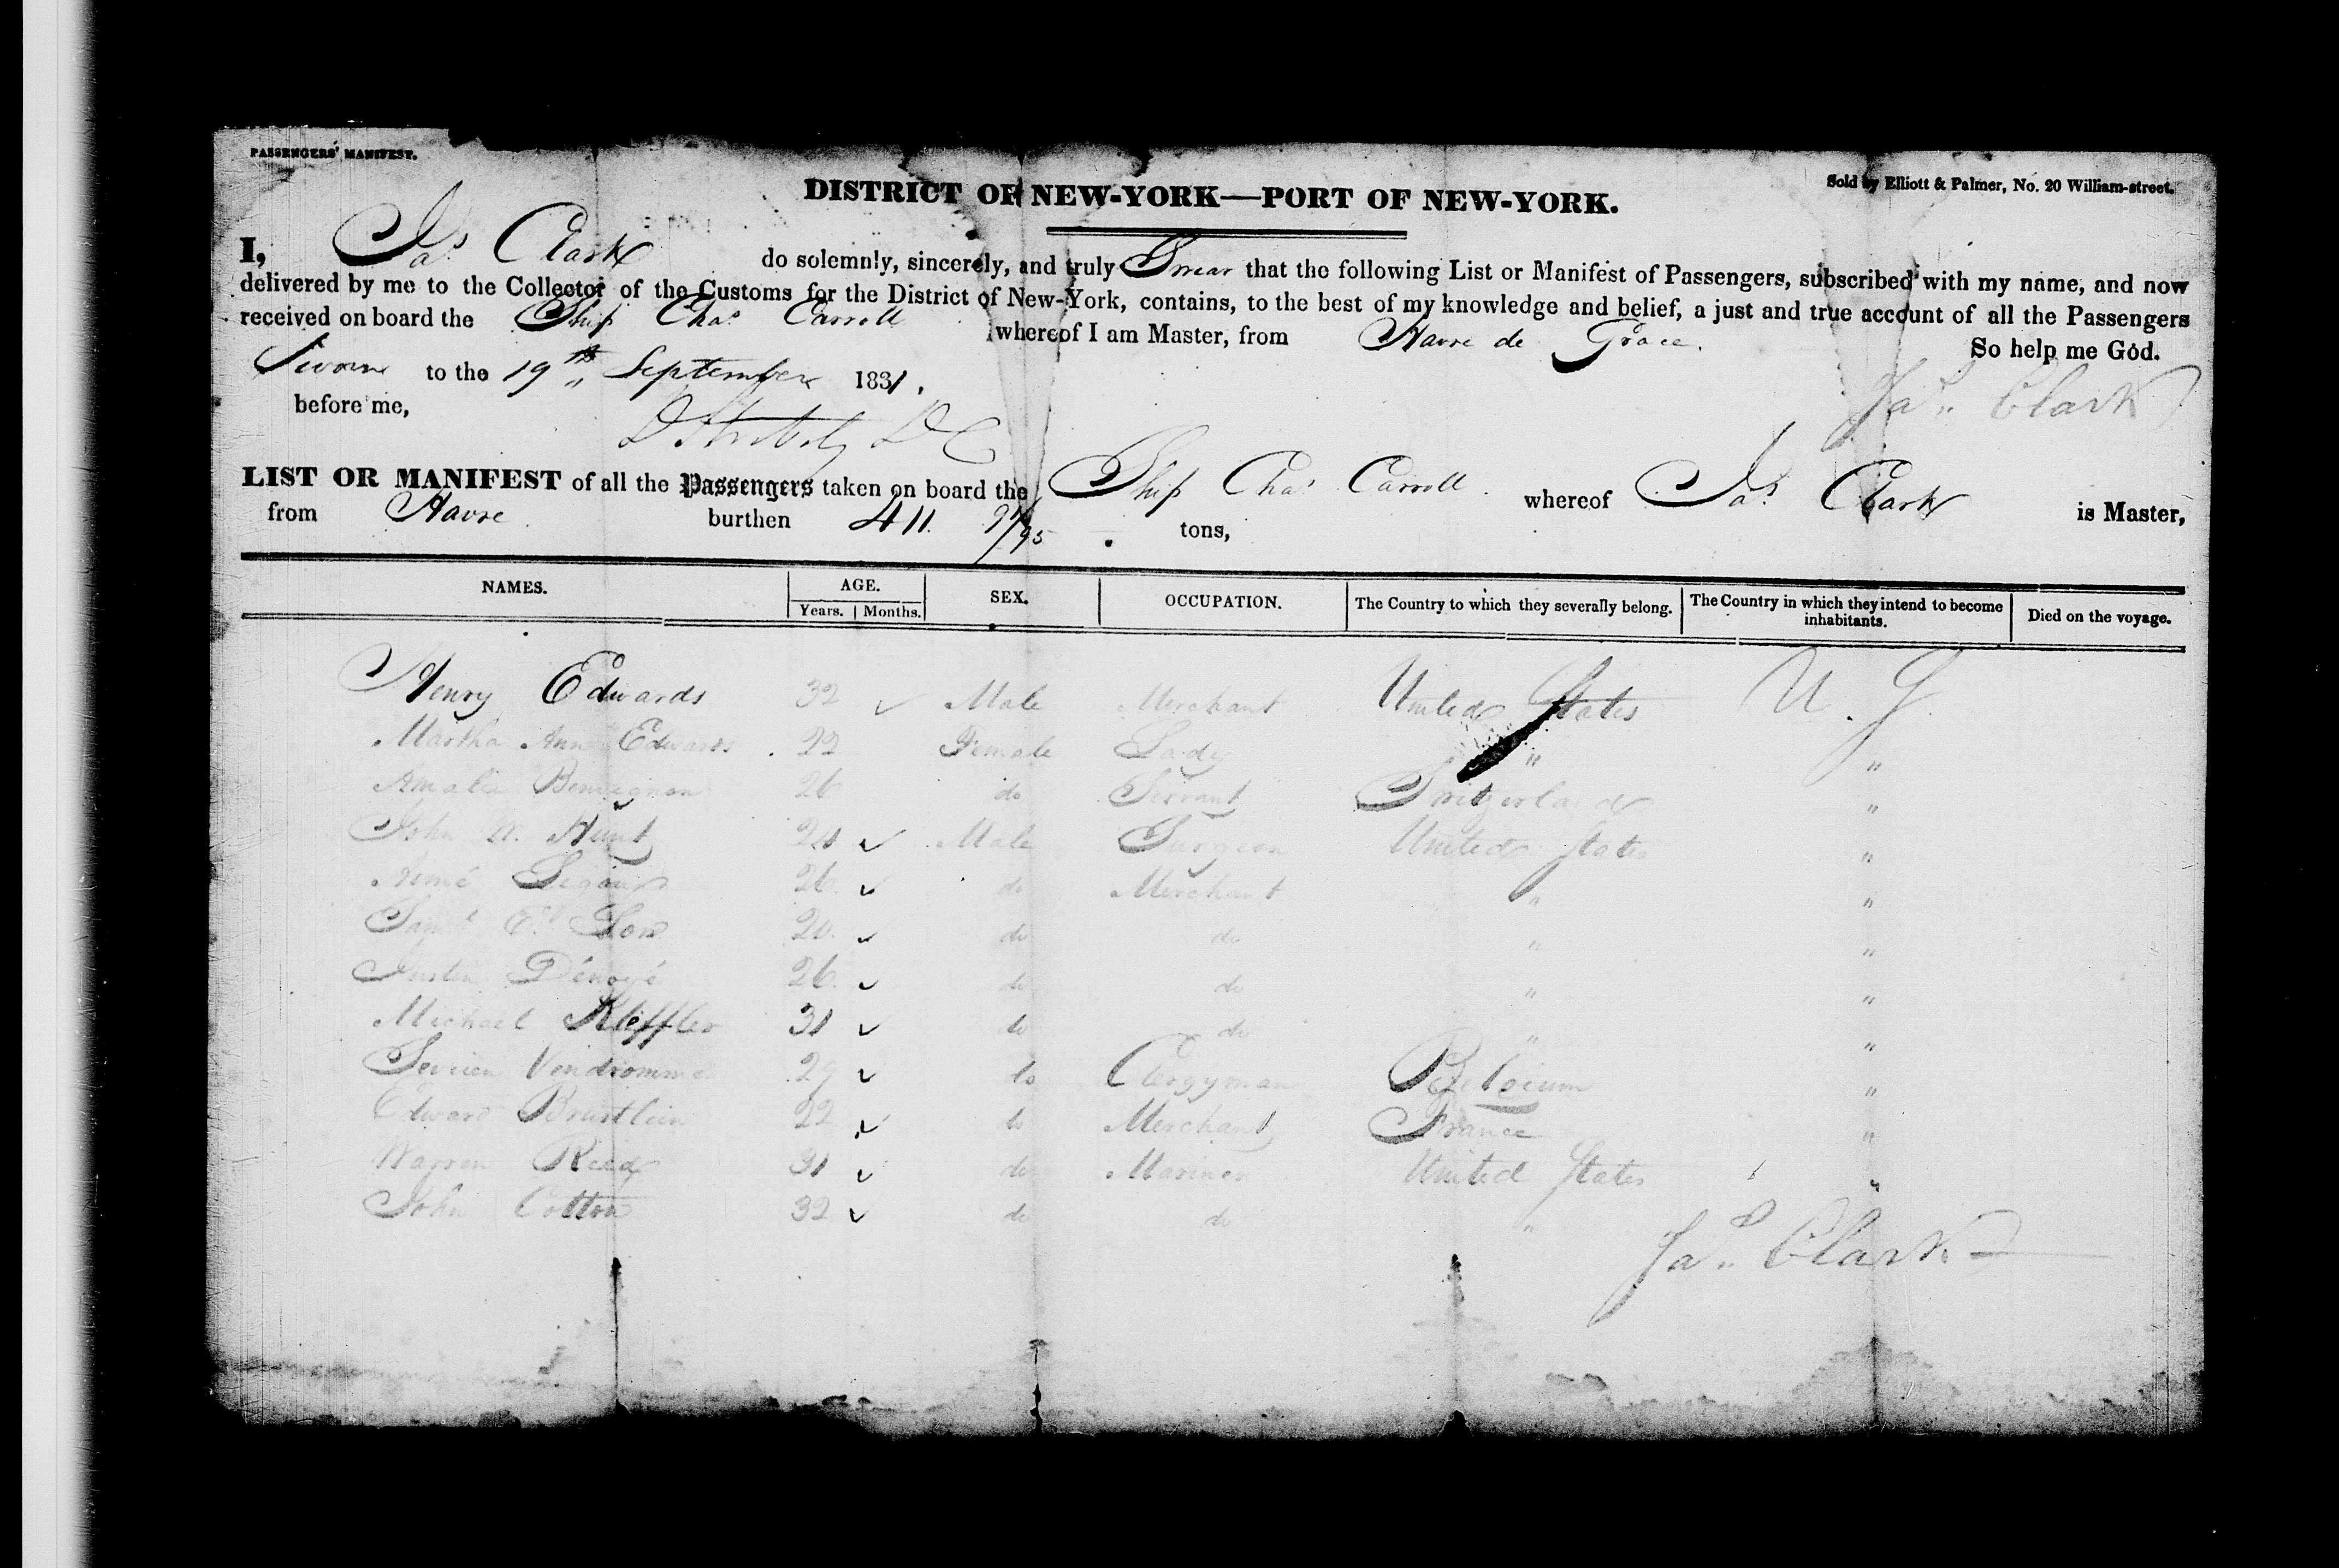 PASSENGERS' MANIFEST.
DISTRICT OF NEW-YORK—PORT OF NEW-YORK.
Sold by Elliott & Palmer, No. 20 William-street.
I, Jas Clark do solemnly, sincerely, and truly Swear that the following List or Manifest of Passengers, subscribed with my name, and now
delivered by me to the Collector of the Customs for the District of New-York, contains, to the best of my knowledge and belief, a just and true account of all the Passengers
received on board the Ship Chas Carroll whereof I am Master, from Havre de Grace.
So help me God.
Sworn to the 19th September 1831.
before me,
Jas Clark
D C
LIST OR MANIFEST of all the Passengers taken on board the Ship Chas Carroll whereof Jas Clark is Master,
from Havre burthen 411 91/95 tons,
NAMES. AGE. SEX. OCCUPATION. The Country to which they severally belong. The Country in which they intend to become inhabitants. Died on the voyage.
Years. Months.
Henry Edwards 32 ✓ Male Merchant United States U. S.
Martha Ann Edwards 22 Female Lady " "
Amalie 26 do Servant Switzerland "
John W. Hunt ✓ Male Surgeon United States "
26 ✓ do Merchant " "
Saml ✓ do do " "
Justin Dénoyé 26 ✓ do do " "
Michael Kleffler 31 ✓ do do " "
Vendromme 29 ✓ do Clergyman Belgium "
Edward Brustlein 22 ✓ do Merchant France "
Warren Reed 31 ✓ do Mariner United States "
John Cotton 32 ✓ do do "
Jas Clark